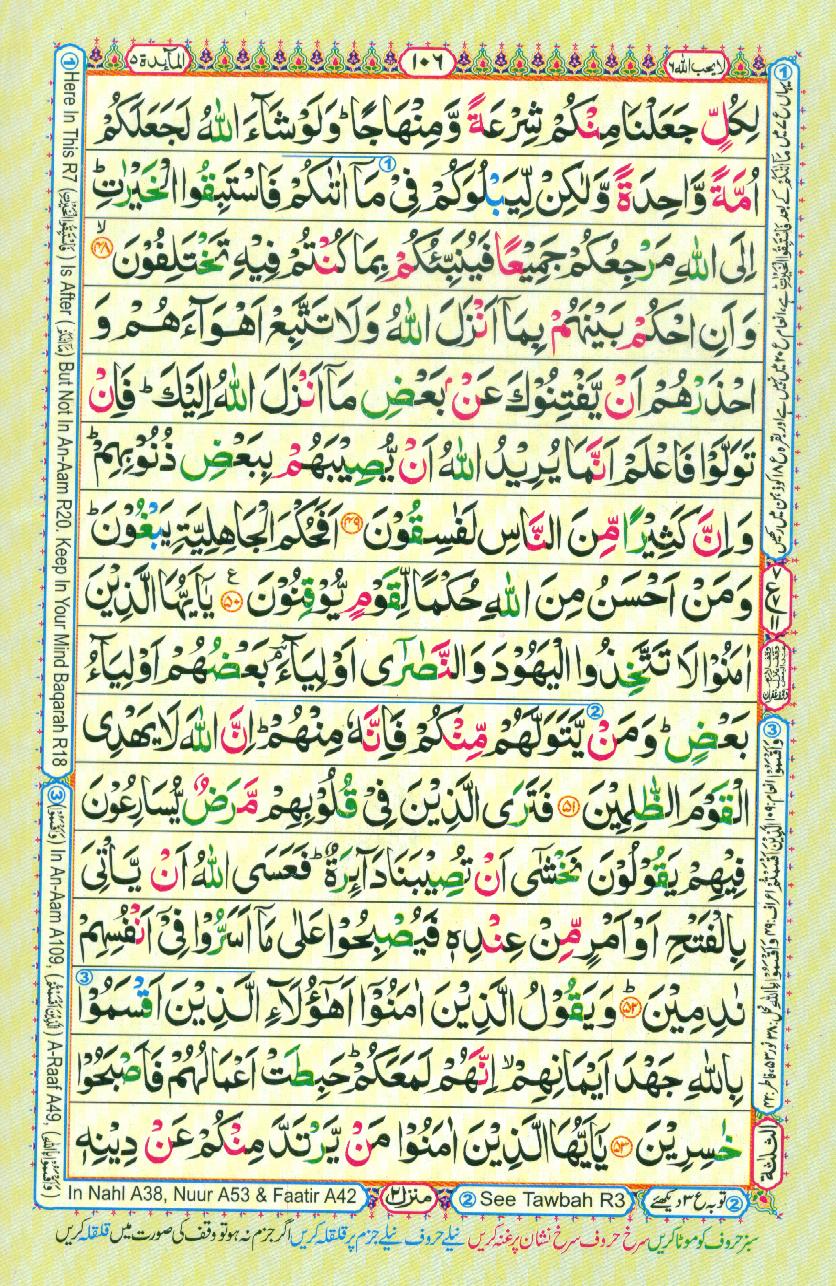 المآىدة ٥
١٠٦
لا يحب الله ٦
لِكُلٍّ جَعَلْنَا مِنْكُمْ شِرْعَةً وَّمِنْهَاجًا ؕ وَلَوْ شَآءَ اللّٰهُ لَجَعَلَكُمْ
اُمَّةً وَّاحِدَةً وَّلٰكِنْ لِّيَبْلُوَكُمْ فِيْ مَاۤ اٰتٰىكُمْ فَاسْتَبِقُوا الْخَيْرٰتِ ؕ
اِلَى اللّٰهِ مَرْجِعُكُمْ جَمِيْعًا فَيُنَبِّئُكُمْ بِمَا كُنْتُمْ فِيْهِ تَخْتَلِفُوْنَ ۙ ﴿۴۸﴾
وَاَنِ احْكُمْ بَيْنَهُمْ بِمَاۤ اَنْزَلَ اللّٰهُ وَلَا تَتَّبِعْ اَهْوَآءَهُمْ وَ
احْذَرْهُمْ اَنْ يَّفْتِنُوْكَ عَنْۢ بَعْضِ مَاۤ اَنْزَلَ اللّٰهُ اِلَيْكَ ؕ فَاِنْ
تَوَلَّوْا فَاعْلَمْ اَنَّمَا يُرِيْدُ اللّٰهُ اَنْ يُّصِيْبَهُمْ بِبَعْضِ ذُنُوْبِهِمْ ؕ
وَاِنَّ كَثِيْرًا مِّنَ النَّاسِ لَفٰسِقُوْنَ ﴿۴۹﴾ اَفَحُكْمَ الْجَاهِلِيَّةِ يَبْغُوْنَ ؕ
وَمَنْ اَحْسَنُ مِنَ اللّٰهِ حُكْمًا لِّقَوْمٍ يُّوْقِنُوْنَ ﴿۵۰﴾ ع يٰۤاَيُّهَا الَّذِيْنَ
اٰمَنُوْا لَا تَتَّخِذُوا الْيَهُوْدَ وَالنَّصٰرٰۤى اَوْلِيَآءَ ۘ بَعْضُهُمْ اَوْلِيَآءُ
بَعْضٍ ؕ وَمَنْ يَّتَوَلَّهُمْ مِّنْكُمْ فَاِنَّهٗ مِنْهُمْ ؕ اِنَّ اللّٰهَ لَا يَهْدِى
الْقَوْمَ الظّٰلِمِيْنَ ﴿۵۱﴾ فَتَرَى الَّذِيْنَ فِيْ قُلُوْبِهِمْ مَّرَضٌ يُّسَارِعُوْنَ
فِيْهِمْ يَقُوْلُوْنَ نَخْشٰۤى اَنْ تُصِيْبَنَا دَآئِرَةٌ ؕ فَعَسَى اللّٰهُ اَنْ يَّاْتِىَ
بِالْفَتْحِ اَوْ اَمْرٍ مِّنْ عِنْدِهٖ فَيُصْبِحُوْا عَلٰى مَاۤ اَسَرُّوْا فِيْۤ اَنْفُسِهِمْ
نٰدِمِيْنَ ؕ ﴿۵۲﴾ وَيَقُوْلُ الَّذِيْنَ اٰمَنُوْۤا اَهٰۤؤُلَآءِ الَّذِيْنَ اَقْسَمُوْا
بِاللّٰهِ جَهْدَ اَيْمَانِهِمْ ۙ اِنَّهُمْ لَمَعَكُمْ ؕ حَبِطَتْ اَعْمَالُهُمْ فَاَصْبَحُوْا
خٰسِرِيْنَ ﴿۵۳﴾ يٰۤاَيُّهَا الَّذِيْنَ اٰمَنُوْا مَنْ يَّرْتَدَّ مِنْكُمْ عَنْ دِيْنِهٖ
① Here In This R7 (فَاسْتَبِقُوا الْخَيْرٰتِ) Is After (مَا اٰتٰىكُمْ) But Not In An-Aam R20. Keep In Your Mind Baqarah R18
③ (وَاَقْسَمُوْا) In An-Aam A109, (الَّذِيْنَ اَقْسَمْتُمْ) A-Raaf A49, (وَاَقْسَمُوْا بِاللّٰهِ)
In Nahl A38, Nuur A53 & Faatir A42
منزل ٢
② See Tawbah R3
② توبہ ع ٣ دیکھئے
الثلثة
سبز حروف کو موٹا کریں سرخ حروف سرخ نشان پر غنہ کریں نیلے حروف نیلے جزم پر قلقلہ کریں اگر جزم نہ ہو تو وقف کی صورت میں قلقلہ کریں